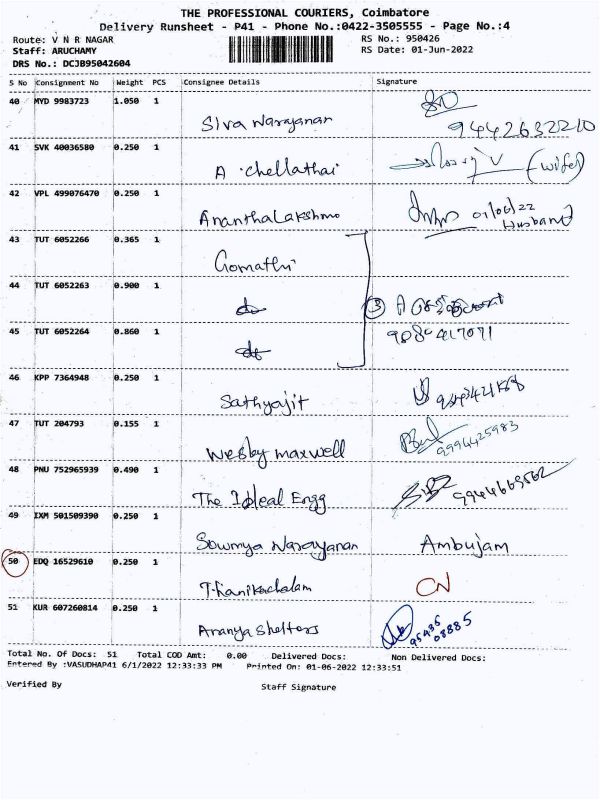 THE PROFESSIONAL COURIERS, Coimbatore
Delivery Runsheet - P41 - Phone No.:0422-3505555 - Page No.:4
Route: V N R NAGAR
RS No.: 950426
Staff: ARUCHAMY
RS Date: 01-Jun-2022
DRS No.: DCJB95042604
S No Consignment No Weight PCS Consignee Details Signature
40 MYD 9983723 1.050 1
Siva Narayanan 9442632210
41 SVK 40036580 0.250 1
A. Chellathai (wife)
42 VPL 499076470 0.250 1
AnanthaLakshmo 01/06/22
Husband
43 TUT 6052266 0.365 1
Gomathi
44 TUT 6052263 0.900 1
do 3
45 TUT 6052264 0.860 1
do 9080417071
46 KPP 7364948 0.250 1
Sathyajit
47 TUT 204793 0.155 1
Wesby maxwell 9994425983
48 PNU 752965939 0.490 1
The Ideal Engg
49 IXM 501509390 0.250 1
Sowmya Narayanan Ambujam
50 EDQ 16529610 0.250 1
Thanikachalam CN
51 KUR 607260814 0.250 1
Ananya Shelters 95436
03885
Total No. Of Docs: 51 Total COD Amt: 0.00 Delivered Docs: Non Delivered Docs:
Entered By :VASUDHAP41 6/1/2022 12:33:33 PM Printed On: 01-06-2022 12:33:51
Verified By
Staff Signature